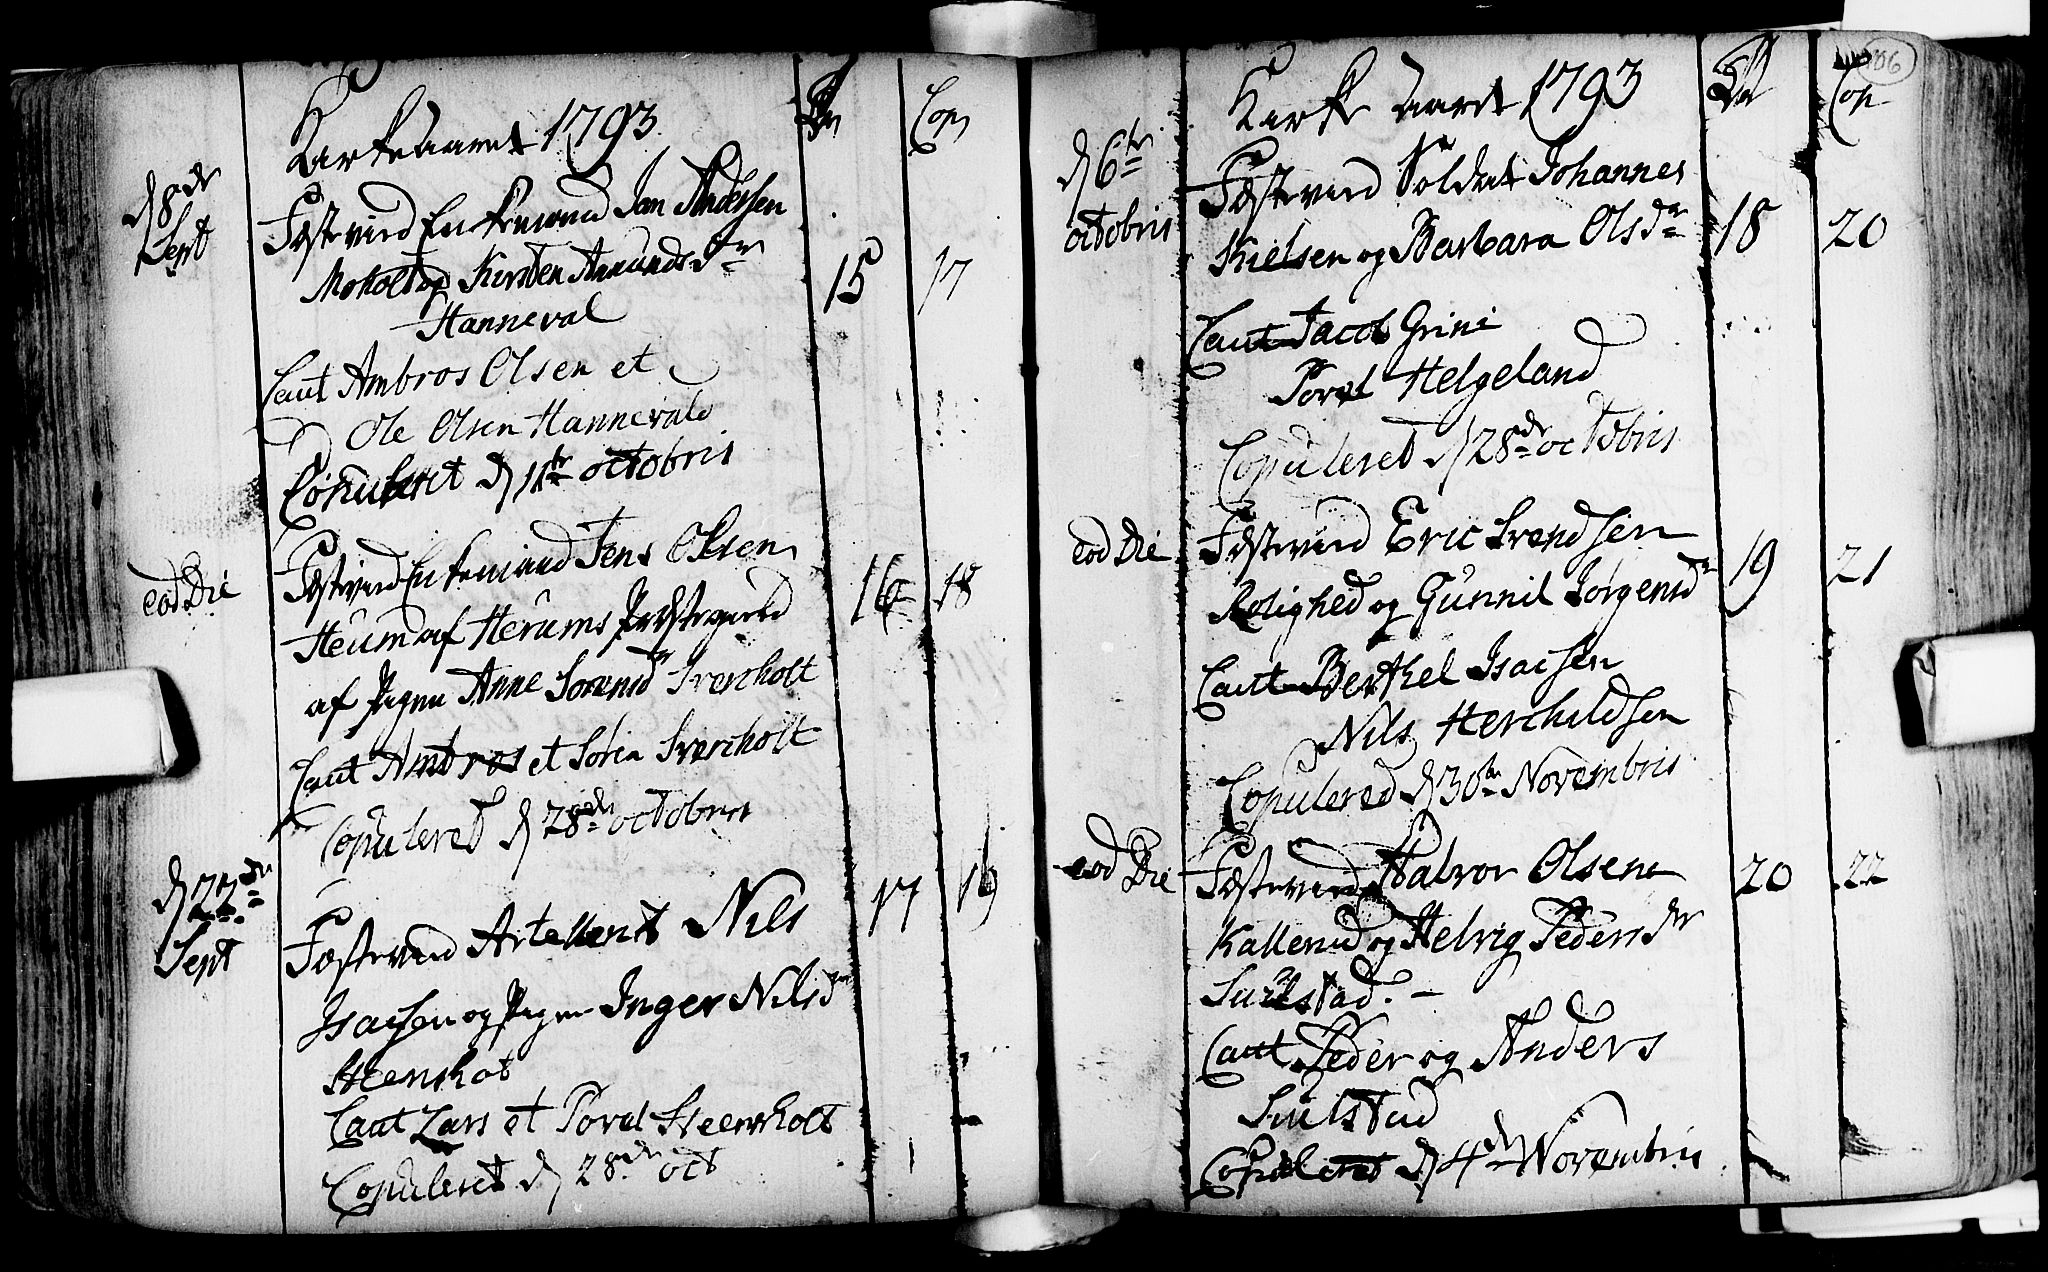 Kirke Aaret 1793 Cop
d 8de Sept Fæstevied Enkemand Jan Andersen
Moholt og Kirsten Amundsdr 15 17
Hanneval
Caut Ambros Olsen et
Ole Olsen Hannevald
Copuleret d 11te octobris
eod Die Fæstevied Enkemand Jens Olsen 16 18
Heum af Herums Præstegield
af Pigen Anne Sørensdr Svercholt
Caut Ambros et Søren Svercholt
Copuleret d 28de octobris
d 22de Sept Fæstevied Artellerist Nils 17 19
Isacsen og Pigen Inger Nilsdr
Steensholt
Caut Lars et Povel Steensholt
Copuleret d 28de oct
106
Kirke Aaret 1793 Cop
d 6te octobris Fæstevied Soldat Johannes
Kielsen og Barbara Olsdr 18 20
Caut Jacob Grini
Povel Helgeland
Copuleret d 28de octobris
eod Die Fæstevied Eric Svendsen 19 21
Rolighed og Gunnil Jørgensdr
Caut Berthel Isacsen
Nils Herchildsen
Copulered d 30te Novembris
eod Die Fæstevied Halvor Olsen 20 22
Kallerud og Helvig Pedersdr
Sulstad. –
Caut Peder og Anders
Sulstad
Copuleret d 4de Novembris